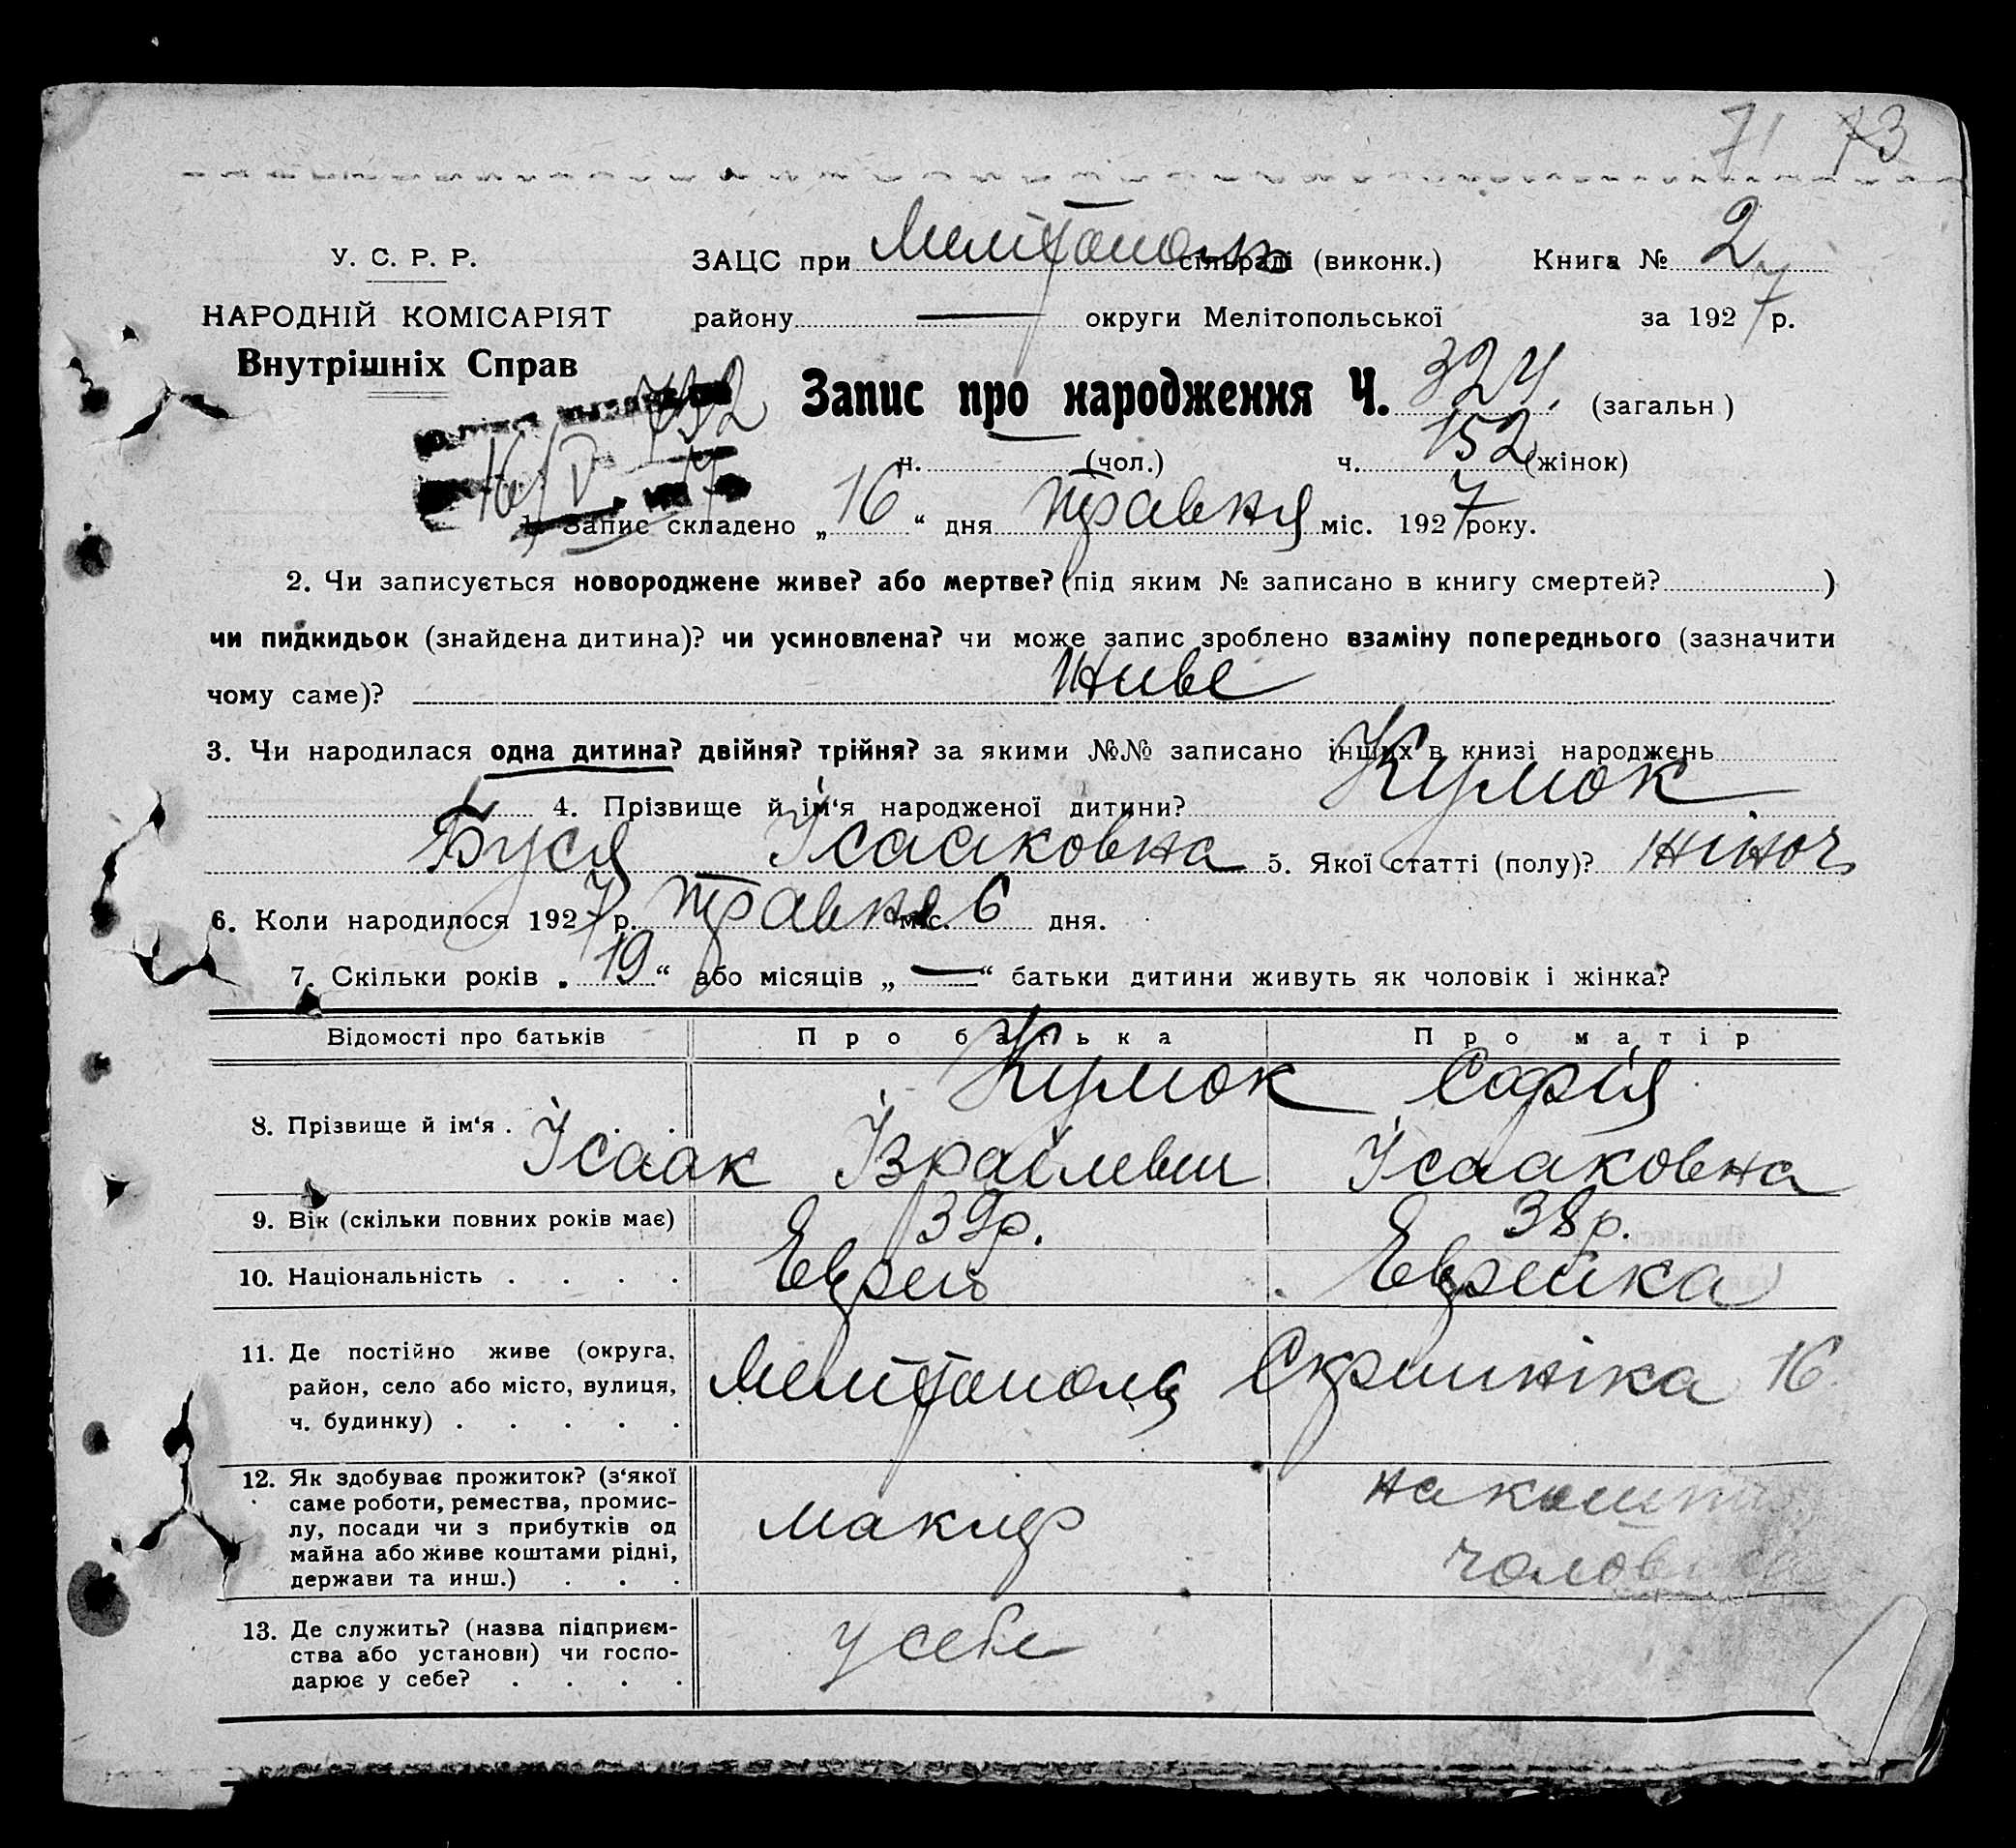 71 73
У. С. Р. Р. ЗАЦС при Мелітополь сільраді (виконк.) Книга № 2
НАРОДНІЙ КОМІСАРІЯТ району — округи Мелітопольської за 1927 р.
Внутрішніх Справ
Запис про народження Ч. 324. (загальн)
732
ч. (чол.) ч. 152 (жінок)
16/V
1. Запис складено „16“ дня травня міс. 1927 року.
2. Чи записується новороджене живе? або мертве? (під яким № записано в книгу смертей? )
чи пидкидьок (знайдена дитина)? чи усиновлена? чи може запис зроблено взаміну попереднього (зазначити
чому саме)? живе
3. Чи народилася одна дитина? двійня? трійня? за якими №№ записано інших в книзі народжень
4. Прізвище й ім‘я народженої дитини? Кумок
Буся Ісааковна 5. Якої статті (полу)? жіноч
6. Коли народилося 1927 р. травня міс. 6 дня.
7. Скільки років „19“ або місяців „—“ батьки дитини живуть як чоловік і жінка?
Відомості про батьків Про батька Про матір
Кумок Софія
8. Прізвище й ім‘я . . . Ісаак Ізраілевич Ісааковна
9. Вік (скільки повних років має) 39 р. 38 р.
10. Національність . . . . Еврей Еврейка
11. Де постійно живе (округа,
район, село або місто, вулиця, Мелітополь Скрипніка 16
ч. будинку) . . . . .
12. Як здобуває прожиток? (з‘якої на кошти
саме роботи, ремества, промис-
лу, посади чи з прибутків од макляр
майна або живе коштами рідні, чоловіка
держави та инш.) . . .
13. Де служить? (назва підприєм-
ства або установи) чи госпо- у себе
дарює у себе? . . . .